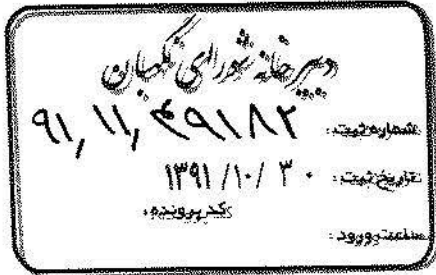 دبیرخانه شورای نگهبان
شماره ثبت: ۹۱,۱۱,۴۹۱۸۲
تاریخ ثبت: ۱۳۹۱/۱۰/۳۰
کد پرونده:
ساعت ورود: